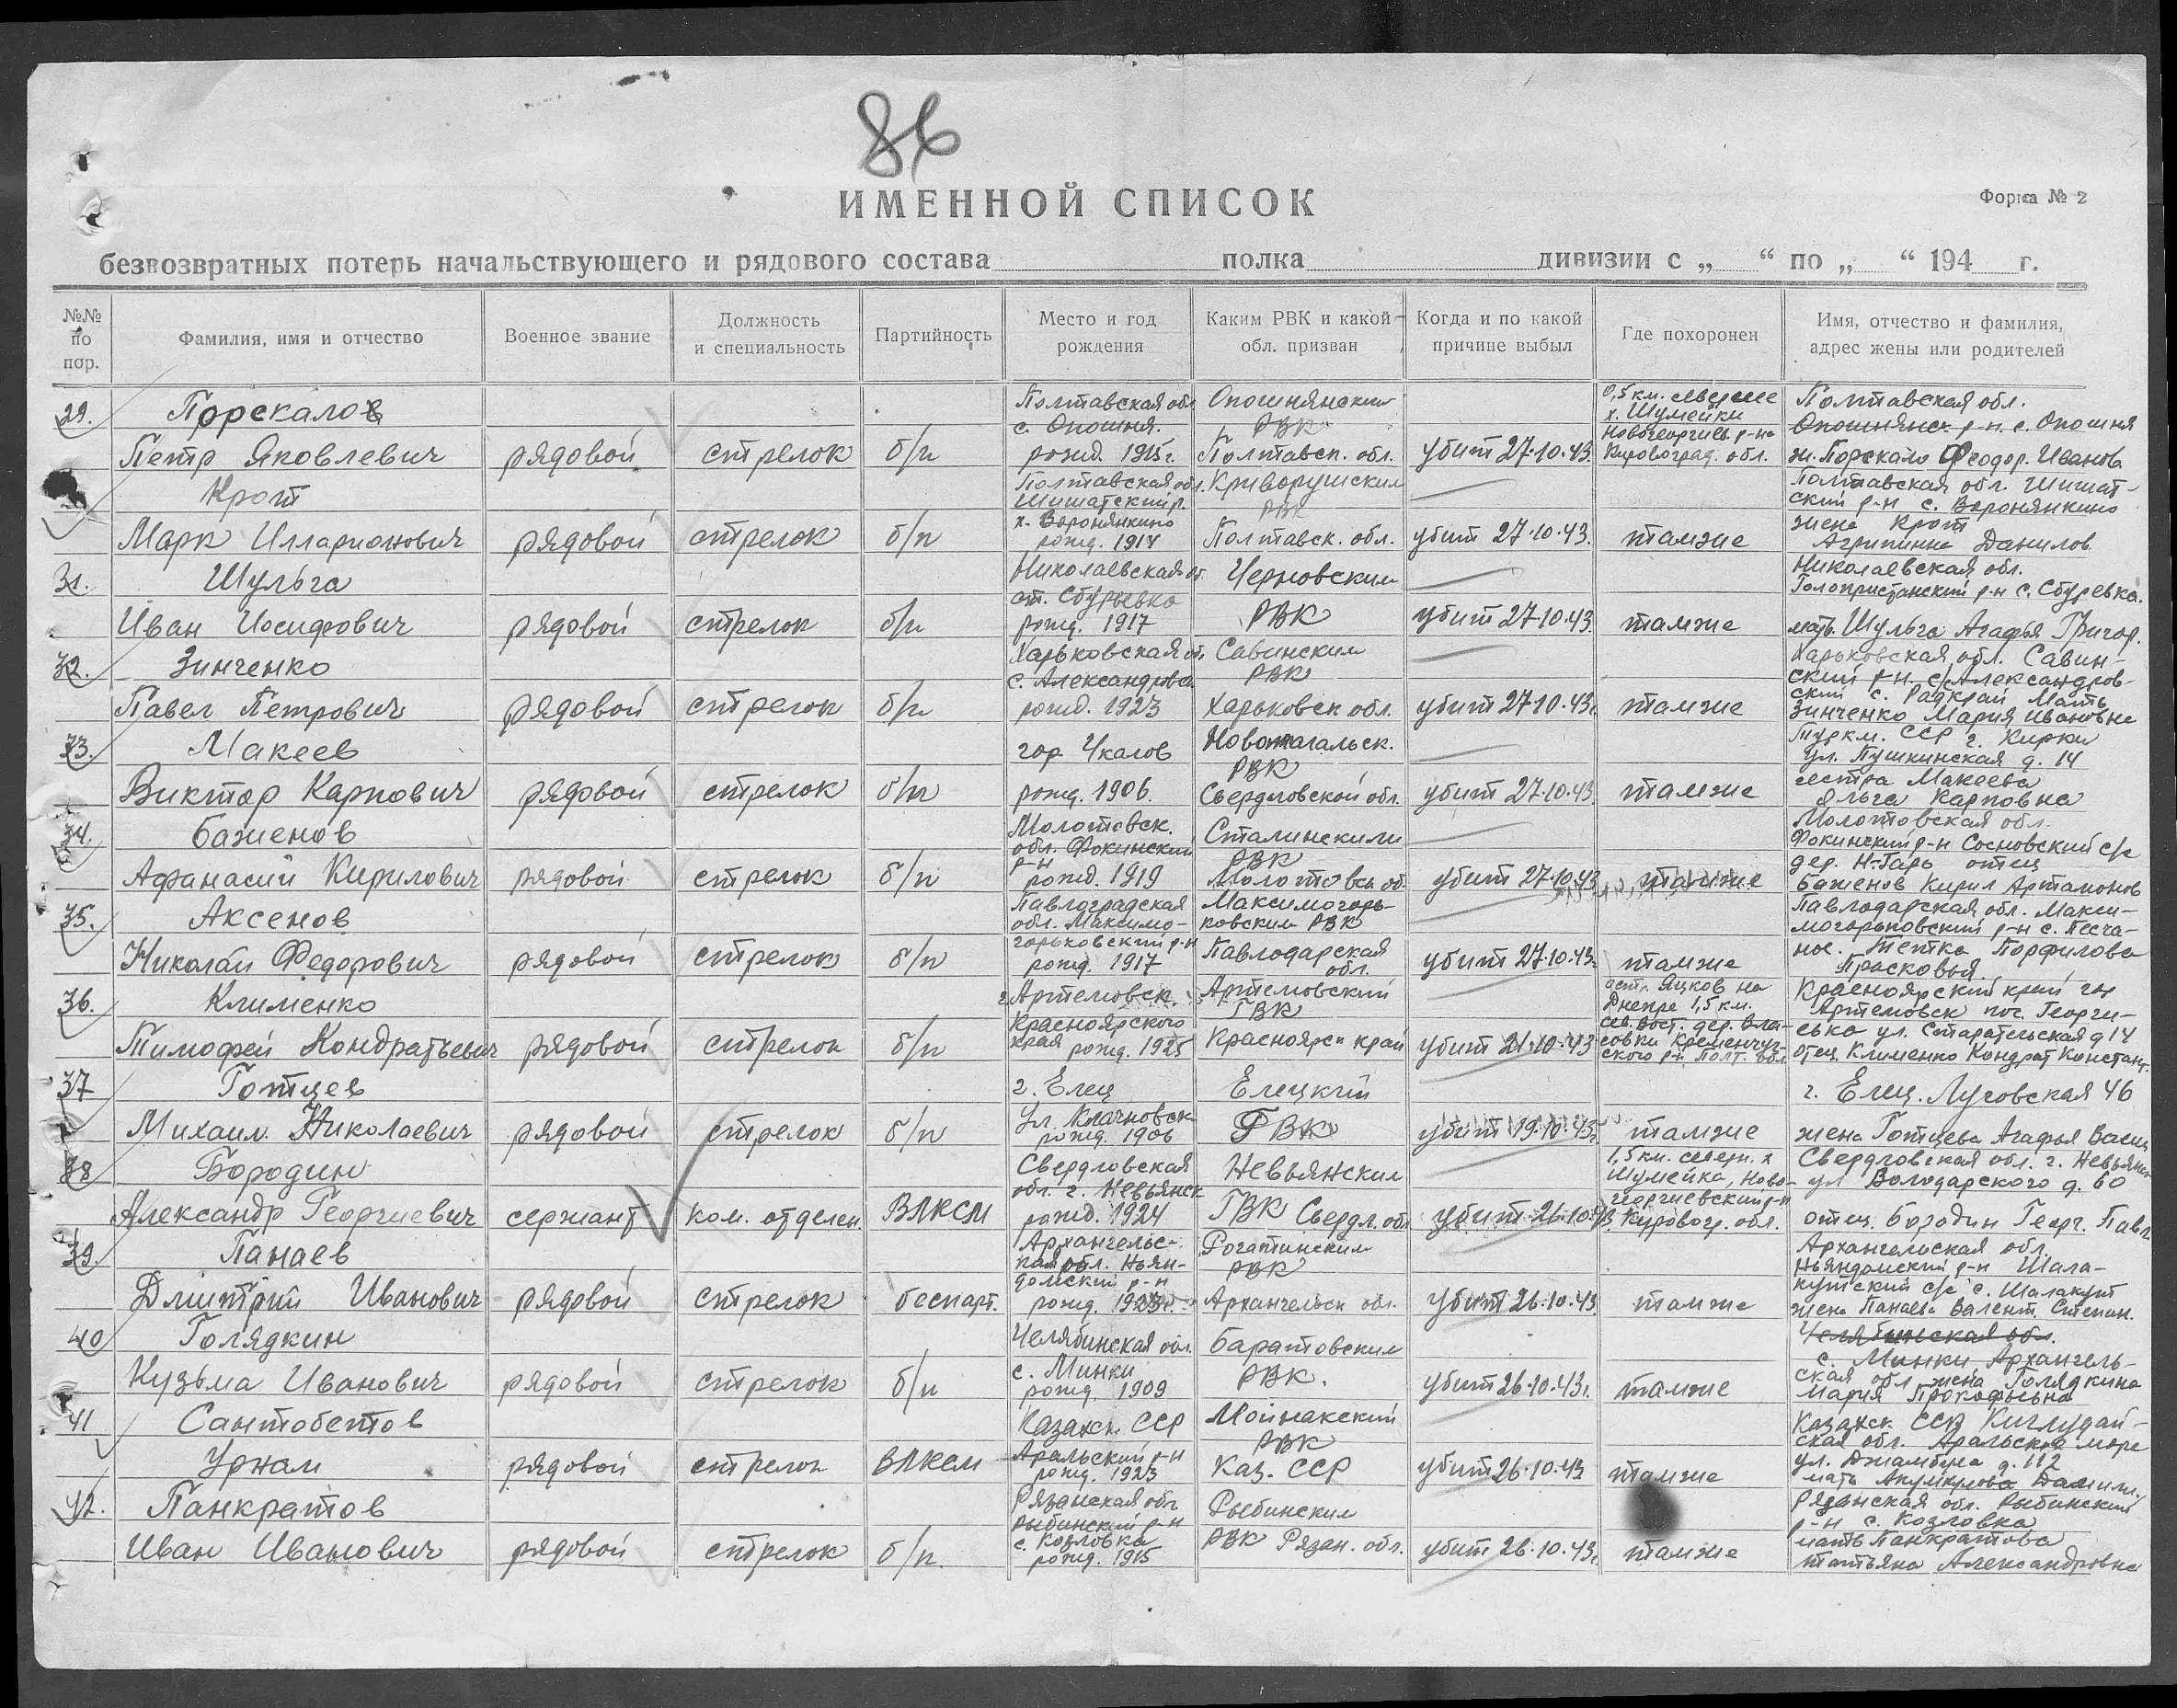 86
ИМЕННОЙ СПИСОК
Форма № 2
безвозвратных потерь начальствующего и рядового состава полка дивизии с „ “ по „ “ 194 г.
№№ по пор. Фамилия, имя и отчество Военное звание Должность и специальность Партийность Место и год рождения Каким РВК и какой обл. призван Когда и по какой причине выбыл Где похоронен Имя, отчество и фамилия, адрес жены или родителей
29. Порскало Петр Яковлевич рядовой стрелок б/п Полтавская обл. с. Опошня. рожд. 1915 г. Опошнянским РВК Полтавск. обл. убит 27.10.43. 0,5 км. севернее х. Шумейки Новогеоргиев. р-на Кировоград. обл. Полтавская обл. Опошнянск р-н с. Опошня ж. Порскало Феодор. Иванов
Крот Марк Илларионович рядовой стрелок б/п Полтавская обл. Шишатский р. х. Воронянкино рожд. 1914 Криворушским РВК Полтавск. обл. убит 27.10.43. тамже Полтавская обл. Шишатский р-н с. Воронянкино жена Крот Агрипинна Данилов
31. Шульга Иван Иосифович рядовой стрелок б/п Николаевская от. ст. Сбурьевка рожд. 1917 Черновским РВК убит 27.10.43. тамже Николаевская обл. Голопристанский р-н с. Сбуревка. мать Шульга Агафья Григор.
32. Зинченко Павел Петрович рядовой стрелок б/п Харьковская от. с. Александровка рожд. 1923 Савинским РВК Харьковск обл. убит 27.10.43г. тамже Харьковская обл. Савинский р-н с/Александровский с. Радкрай Мать Зинченко Мария Ивановна
33. Макеев Виктор Карпович рядовой стрелок б/п гор Чкалов рожд. 1906. РВК Свердловской обл. убит 27.10.43 тамже Туркм. ССР г. Кирки ул. Пушкинская д. 14 сестра Макеева Ольга Карповна
34. Баженов Афанасий Кирилович рядовой стрелок б/п Молотовск. обл. Фокинский р-н рожд. 1919 Сталинскили РВК Молотовск об. убит 27.10.43 тамже Молотовская обл. Фокинский р-н Сосновский с/с дер. Н-Гарь отец Баженов Кирил Артамонов
35. Аксенов Николай Федорович рядовой стрелок б/п Павлоградская обл. Максимо-горьковский р-н рожд. 1917 Максимогорьковским РВК Павлодарская обл. убит 27.10.43г. тамже Павлодарская обл. Максимогорьковский р-н с. Песчаное. Тетка Парфилова Прасковья.
36. Клименко Тимофей Кондратьевич рядовой стрелок б/п г. Артемовск. Красноярского края рожд. 1925 Артемовский ГВК Красноярск край убит 21.10.43 остр. Яцков на Днепре 1,5 км. сев. вост. дер. Власовки Кременчугского р-н Полт. обл Красноярский край гор Артемовск пос. Георгиевка ул. Старательская д 14 отец Клименко Кондрат Констант.
37 Готцев Михаил Николаевич рядовой стрелок б/п г. Елец рожд. 1906 Елецкий ГВК убит 19.10.43г. тамже г. Елец. Лучовская 46 жена Готцева Агафья Васил
38 Бородин Александр Георгиевич сержант ком. отделен. ВЛКСМ Свердловская обл. г. Невьянск рожд. 1924 Невьянским ГВК Свердл. обл убит 26.10.43 1,5 км. северн. х Шумейка, Ново-георгиевский р-н Кировогр. обл. Свердловская обл. г. Невьянск ул Володарского д. 60 отец. Бородин Георг. Павл.
39. Панаев Дмитрий Иванович рядовой стрелок беспарт. Архангельская обл. Няндомский р-н рожд. 1923г. РВК Архангельск обл. убит 26.10.43 тамже Архангельская обл. Ньяндомский р-н Шалакутский с/с с. Шалакут жена Панаева Валент. Степан.
40 Голядкин Кузьма Иванович рядовой стрелок б/п Челябинская обл. с. Минки рожд. 1909 РВК. убит 26.10.43г. тамже Челябинская обл. с. Минки Архангельская обл жена Голядкина Мария Прокофьевна
41 Сантобетов Уржам рядовой стрелок ВЛКСМ Казахск. ССР Аральский р-н рожд. 1923 Мойнакский РВК Каз. ССР убит 26.10.43 тамже Казахск. ССР обл. Аральское море ул. Джамбула д. 112 мать
42. Панкратов Иван Иванович рядовой стрелок б/п. Рязанская обл Рыбинский р-н с. Козловка рожд. 1915 Рыбинским РВК Рязан. обл. убит 26.10.43г. тамже Рязанская обл. Рыбинский р-н с. Козловка мать Панкратова Татьяна Александровна